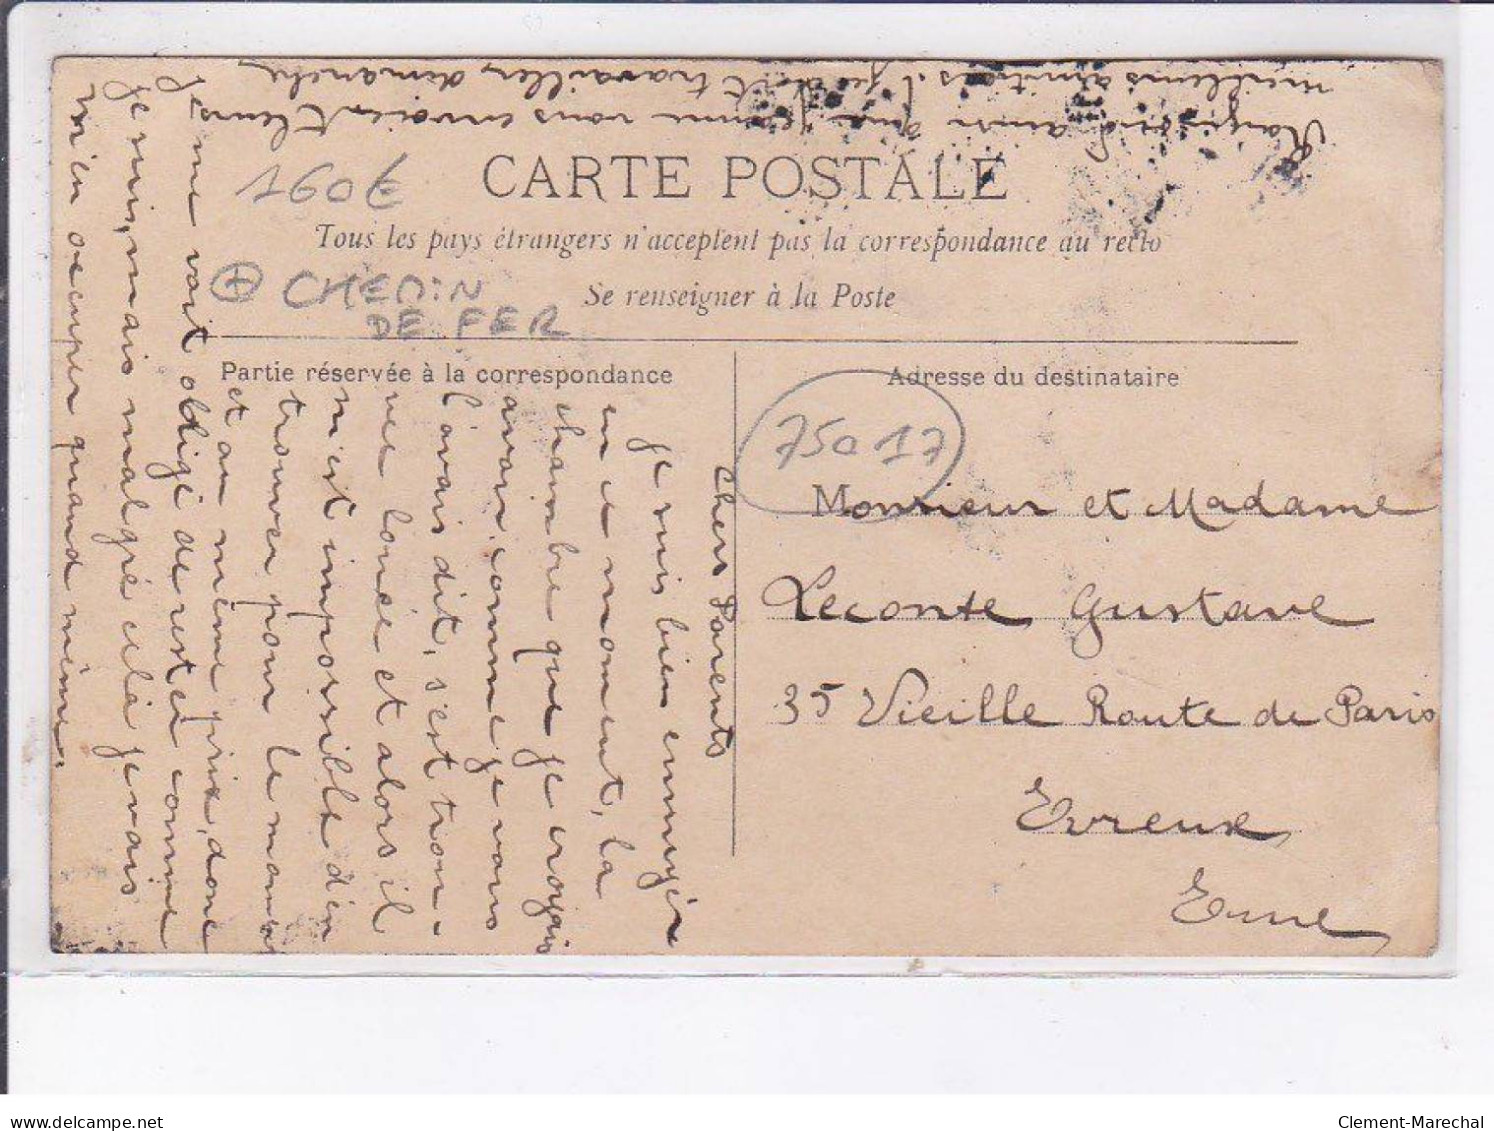 CARTE POSTALE
Tous les pays étrangers n'acceptent pas la correspondance au recto
Se renseigner à la Poste
160€
+ CHEMIN
DE FER
Partie réservée à la correspondance
Adresse du destinataire
75017
Monsieur et Madame
Leconte Gustave
35 Vieille Route de Paris
Evreux
Eure
Chers Parents
je suis bien ennuyée
en ce moment, la
chambre que je croyais
avoir comme je vous
l'avais dit, s'est trou-
vée louée et alors il
n'est impossible d'en
trouver pour le moment
et au même prix, donc
je me vois obligé de rester comme
je suis, mais malgré cela je vais
m'en occuper quand même.
ainsi que Jeanne vous envoient leurs
meilleurs amitiés. travailler dimanche
delcampe.net
Clement-Marechal